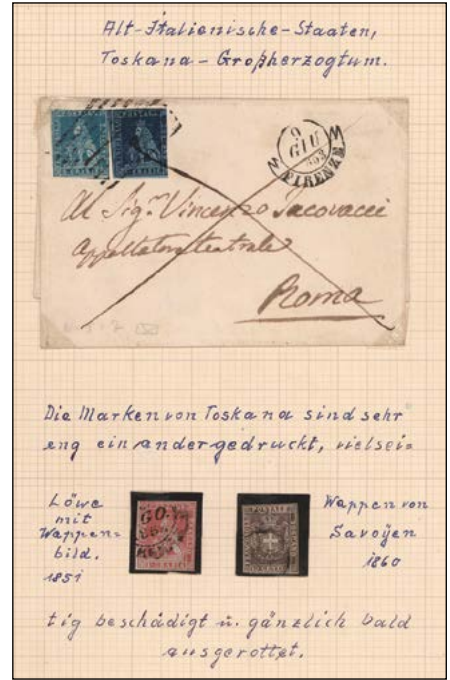 Alt-Italienische-Staaten,
Toskana-Großherzogtum.
9
GIU
FIRENZE
Al Sig.r Vincenzo Jacovacci
Appaltatore teatrale
Roma
Die Marken von Toskana sind sehr
eng ein andergedruckt, vielsei=
Löwe
mit
Wappen=
bild.
1851
Wappen von
Savoÿen
1860
tig beschädigt u. gänzlich bald
ausgerottet.